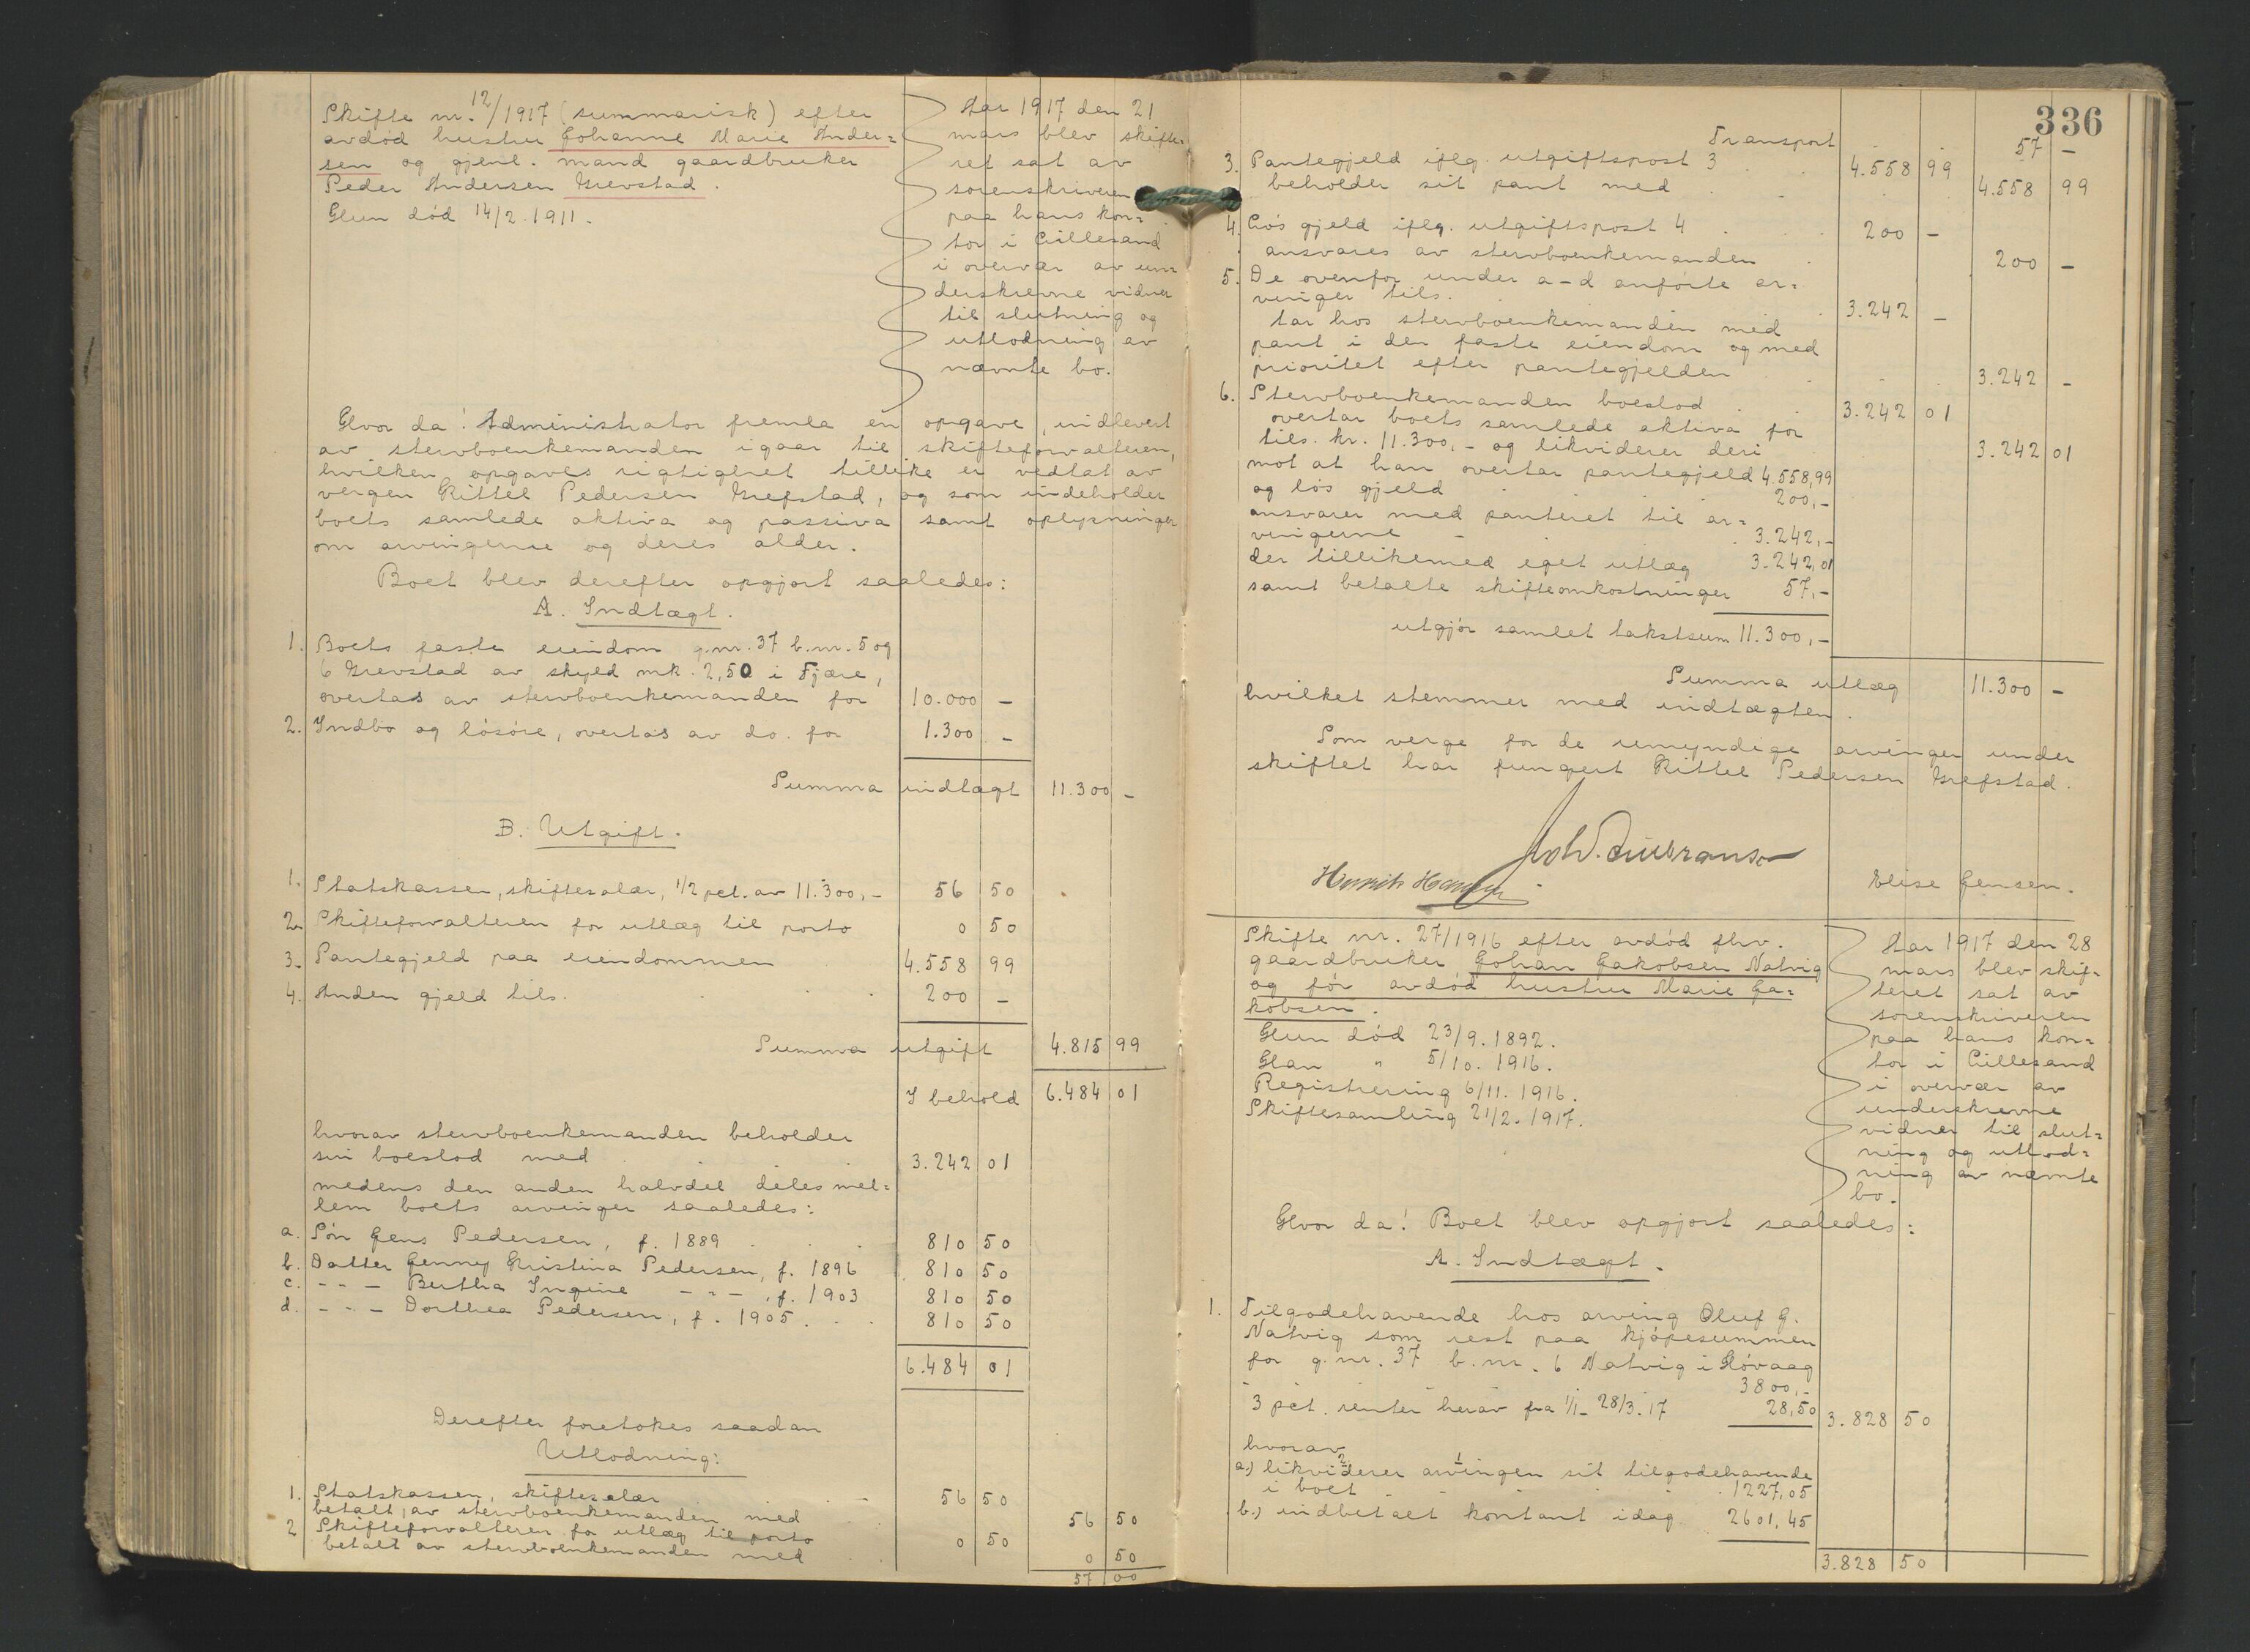 Skifte nr. 12/1917 (summarisk) efter
avdöd hustru Johanne Marie Ander=
sen og gjenl. mand gaardbruker
Peder Andersen Grevstad.
Hun död 14/2.1911.
Aar 1917 den 21
mars blev skifte-
ret sat av
sorenskriveren
paa hans kon=
tor i Lillesand
i overvær av un=
derskrevne vidner
til slutning og
utlodning av
nævnte bo.
Hvor da! Administrator fremla en opgave, indlevert
av stervboenkemanden igaar til skifteforvalteren,
hvilken opgaves rigtighet tillike er vedtat av
vergen Kittel Pedersen Grefstad, og som indeholder
boets samlede aktiva og passiva samt oplysninger
om arvingerne og deres alder.
Boet blev derefter opgjort saaledes:
A. Indtægt.
1. Boets faste eiendom g.nr. 37 b.nr. 5 og
6 Grevstad av skyld mk. 2,50 i Fjære,
overtas av stervboenkemanden for 10.000 -
2. Indbo og lösöre, overtas av do. for 1.300 -
Summa indtægt 11.300 -
B. Utgift.
1. Statskassen, skiftesalær, 1/2 pct. av 11.300,- 56 50
2. Skifteforvalteren for utlæg til porto 0 50
3. Pantegjeld paa eiendommen 4.558 99
4. Anden gjeld tils. 200 -
Summa utgift 4.815 99
I behold 6.484 01
hvorav stervboenkemanden beholder
sin boeslod med 3.242 01
medens den anden halvdel deles mel=
lem boets arvinger saaledes:
a. Sön Jens Pedersen, f. 1889 810 50
b. Datter Jenny Kristina Pedersen, f. 1896 810 50
c. - " - Bertha Ingine - " - , f. 1903 810 50
d. - " - Dorthea Pedersen, f. 1905. 810 50
6.484 01
Derefter foretokes saadan
Utlodning:
1. Statskassen, skiftesalær 56 50
betalt av stervboenkemanden med 56 50
2 Skifteforvalteren for utlæg til porto 0 50
betalt av stervboenkemanden med 0 50
57 00
336
Transport 57 -
3. Pantegjeld iflg. utgiftspost 3 4.558 99
beholder sit pant med 4.558 99
4. Lös gjeld iflg. utgiftspost 4 200 -
ansvares av stervboenkemanden 200 -
5. De ovenfor under a-d anförte ar=
vinger tils. 3.242 -
tar hos stervboenkemanden med
pant i den faste eiendom og med
prioritet efter pantegjelden 3.242 -
6. Stervboenkemanden boeslod 3.242 01
overtar boets samlede aktiva for
tils. kr. 11.300,- og likviderer deri 3.242 01
mot at han overtar pantegjeld 4.558,99
og lös gjeld 200,-
ansvarer med panteret til ar=
vingerne 3.242,-
der tillikemed eget utlæg 3.242,01
samt betalte skifteomkostninger 57,-
utgjör samlet takstsum 11.300,-
Summa utlæg 11.300 -
hvilket stemmer med indtægten.
Som verge for de umyndige arvinger under
skiftet har fungert Kittel Pedersen Grefstad.
Elise Jensen.
Skifte nr. 27/1916 efter avdöd fhv.
gaardbruker Johan Jakobsen Natvig
og för avdöd hustru Marie Ja=
kobsen.
Hun död 23/9. 1892.
Han " 5/10. 1916.
Registrering 6/11. 1916.
Skiftesamling 21/2. 1917.
Aar 1917 den 28
mars blev skif=
teret sat av
sorenskriveren
paa hans kon=
tor i Lillesand
i overvær av
underskrevne
vidner til slut=
ning og utlod=
ning av nævnte
bo.
Hvor da! Boet blev opgjort saaledes:
A. Indtægt.
1. Tilgodehavende hos arving Oluf J.
Natvig som rest paa kjöpesummen
for g.nr. 37 b.nr. 6 Natvig i Hövaag
3800,-
3 pct. renter herav fra 1/1 - 28/3.17 28,50 3.828 50
hvorav
a.) likviderer 2 arvingen 1 sit tilgodehavende
i boet 1227,05
b.) indbetalt kontant idag 2601,45
3.828 50